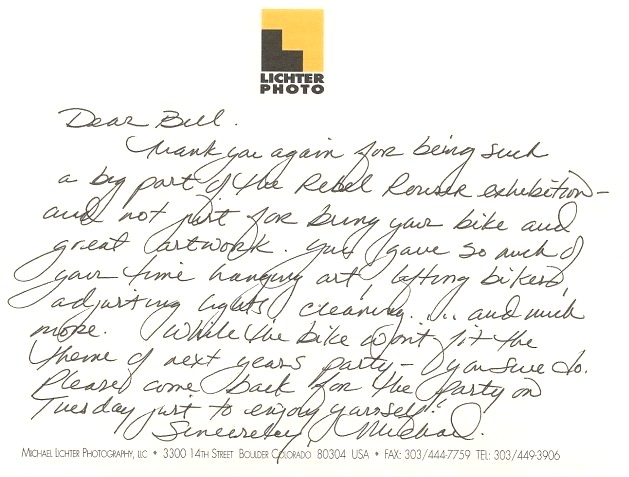 LICHTER
PHOTO
Dear Bill.
Thank you again for being such
a big part of the Rebel Rouser exhibition –
and not just for bring your bike and
great artwork. You gave so much of
your time hanging art, lifting bikes,
adjusting lights, cleaning..... and much
more. While the bike won't fit the
theme of next years party – you sure do.
Please come back for the party on
Tuesday just to enjoy yourself.
Sincerely, Michael.
MICHAEL LICHTER PHOTOGRAPHY, LLC • 3300 14TH STREET BOULDER COLORADO 80304 USA • FAX: 303/444-7759 TEL: 303/449-3906